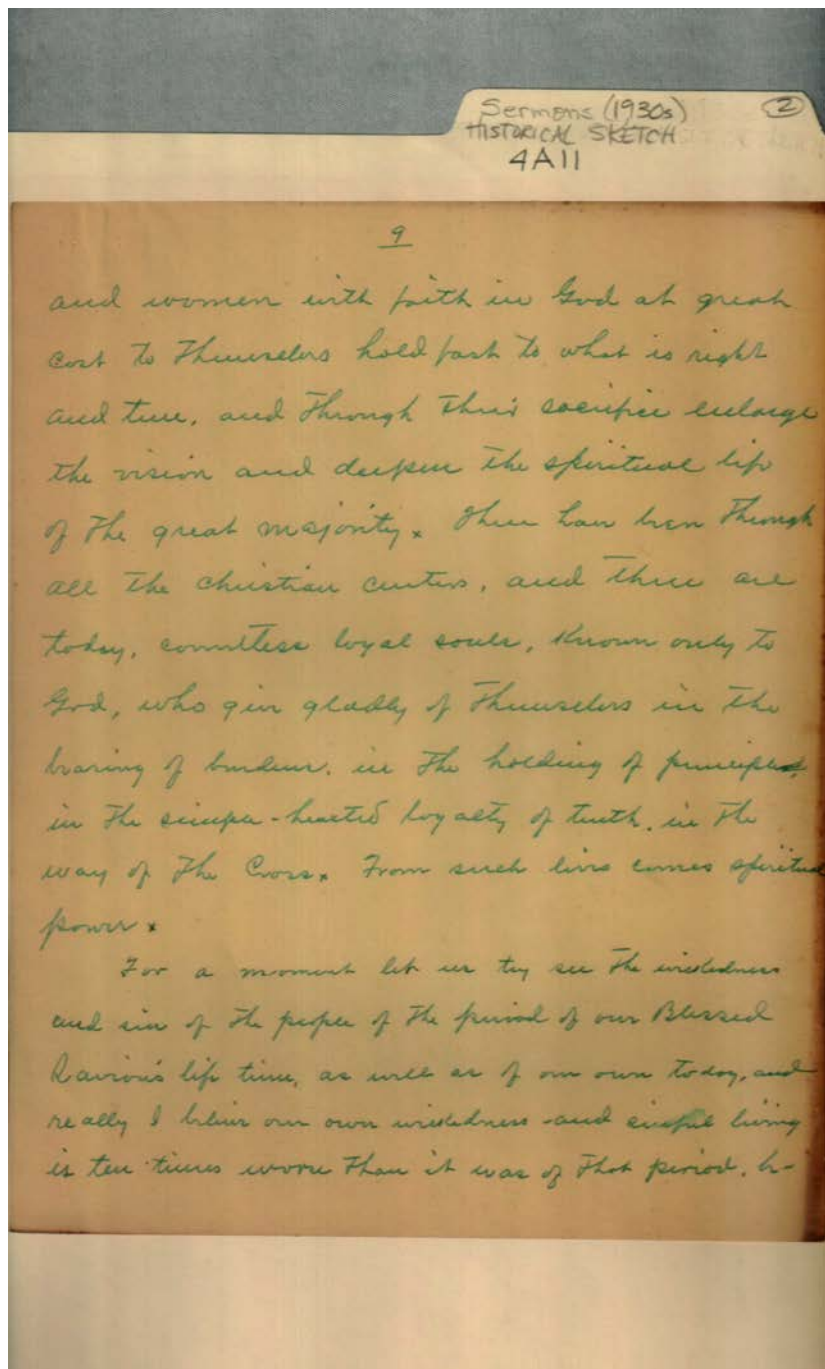 Sermons (1930s) 2
HISTORICAL SKETCH
4A11
9
and women with faith in God at great
cost to Themselves hold fast to what is right
and true, and Through their sacrifice enlarge
the vision and deepen the spiritual life
of The great majority. There have been Through
all the Christian centers, and there are
today, countless loyal souls, Known only to
God, who give gladly of Themselves in the
bearing of burdens, in The holding of principles,
in The simple-hearted loyalty of truth, in The
way of The Cross. From such lives comes spiritual
power.
For a moment let us try see The wickedness
and sin of The people of The period of our Blessed
Saviours life time, as well as of our own today, and
really I believe our own wickedness and sinful living
is ten times worse Than it was of That period. b-